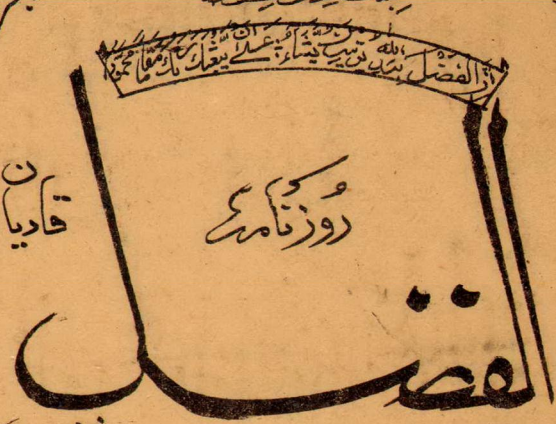 ان الفضل بيد الله يؤتيه من يشاء عسى ان يبعثك ربك مقاما محمودا
روزنامہ
قادیان
الفضل